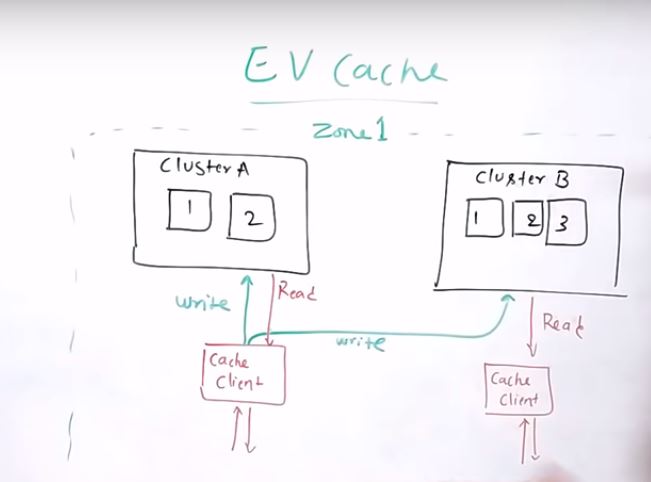 EV Cache
Zone 1
Cluster A
1 2
Cluster B
1 2 3
write
Read
write
Read
Cache
Client
Cache
Client